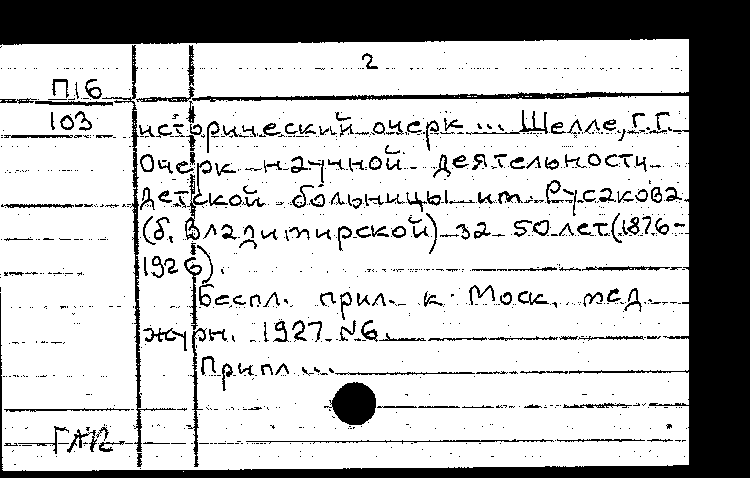 2
П16
103
исторический очерк ... Шелле, Г.Г.
Очерк научной деятельности
Детской больницы им. Русакова
(б. Владимирской) за 50 лет (1876-
1926).
Беспл. прил. к Моск. мед.
журн. 1927 №6.
Припл...